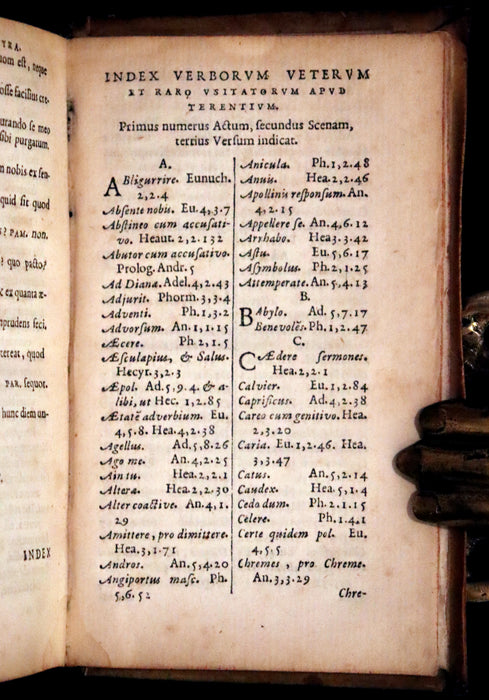 TRA.
nom est, neque
osse facilius cre-
urando se meo
sibi purgatum.
m nobis ex sen-
quid sit quod
s? PAM. non.
? quo pacto?
c ex quanta x-
nprudens feci.
tereat, quod
PAR. sequor.
hunc diem un-
INDEX
INDEX VERBORVM VETERVM
ET RARO VSITATORVM APVD
TERENTIVM.
Primus numerus Actum, secundus Scenam,
tertius Versum indicat.
A.
ABligurrire. Eunuch.
2,2.4
Absente nobis. Eu.4,3.7
Abstineo cum accusati-
vo. Heaut.2,2.132
Abutor cum accusativo.
Prolog. Andr.5
Ad Dianæ. Adel.4,2.43
Adjurit. Phorm.3,3.4
Adventi. Ph.1,3.2
Advorsum. An.1,1.15
Æcere. Ph.2,1.5
Æsculapius, & Salus.
Hecyr.3,2.3
Æpol. Ad.5,9.4. & a-
libi, ut Hec.1,2.85
Ætatē adverbium. Eu.
4,5.8. Hea.4,2.38
Agellus. Ad.5,8.26
Ago me. An.4,2.25
Ain tu. Hea.2,2.1
Altera. Hea.2,2.30
Alter coactive. An.4,1.
29
Amittere, pro dimittere.
Hea.3,1.71
Andros. An.5,4.20
Angiportus masc. Ph.
5,6.52
Anicula. Ph.1,2.48
Anuis. Hea.2,2.46
Apollinis responsum. An.
4,2.15
Appellere se. An.4,6.12
Arrhabo. Hea3.3.42
Astu. Eu.5,6.17
Asymbolus. Ph.2,1.25
Attemperate. An.5,4.13
B.
BAbylo. Ad.5,7.17
Benevolēs. Ph.1,2.47
C.
CÆdere sermones.
Hea.2,2.1
Calvier. Eu.1,2.84
Caprificus. Ad.4,2.38
Careo cum genitivo. Hea.
2,3.20
Caria. Eu.1,2.46. Hea.
3,3.47
Catus. An.5,2.14
Caudex. Hea.5,1.4
Cedo dum. Ph.2.1.15
Celere. Ph.1.4.1
Certe quidem pol. Eu.
4,5.5
Chremes, pro Chreme.
An.3,3.29
Chre-